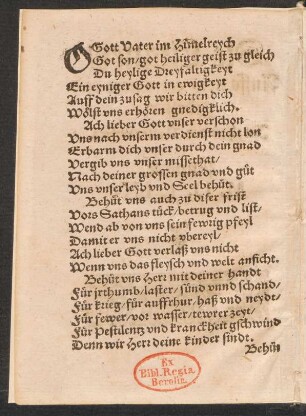 O Gott Vater im Himelreych
Got son/got heiliger geist zu gleich
Du heylige Dreyfaltigkeyt
Ein eyniger Gott in ewigkeyt
Auff dein zusag wir bitten dich
Wölst vns erhöten gnedigklich.
Ach lieber Gott vnser verschon
Vns nach vnserm verdienst nicht lon
Erbarm dich vnser durch dein gnad
Vergib vns vnser missethat/
Nach deiner grossen gnad vnd güt
Vns vnser leyb vnd Seel behüt.
Behüt vns auch zu diser frist
Vors Sathans tück/betrug vnd list/
Wend ab von vns sein fewrig pfeyl
Damit er vns nicht vbereyl/
Ach lieber Gott verlaß vns nicht
Wenn vns das fleysch vnd welt anficht.
Behüt vns Herr mit deiner handt
Für jrthumb/laster/sünd vnnd schand/
Für krieg/für auffrhur/haß vnd neydt/
Für fewer/vor wasser/tewrer zeyt/
Für Pestilentz vnd kranckheit gschwind
Denn wir Herr deine kinder sindt.
Behüt
Ex
Bibl. Regia
Berolin.